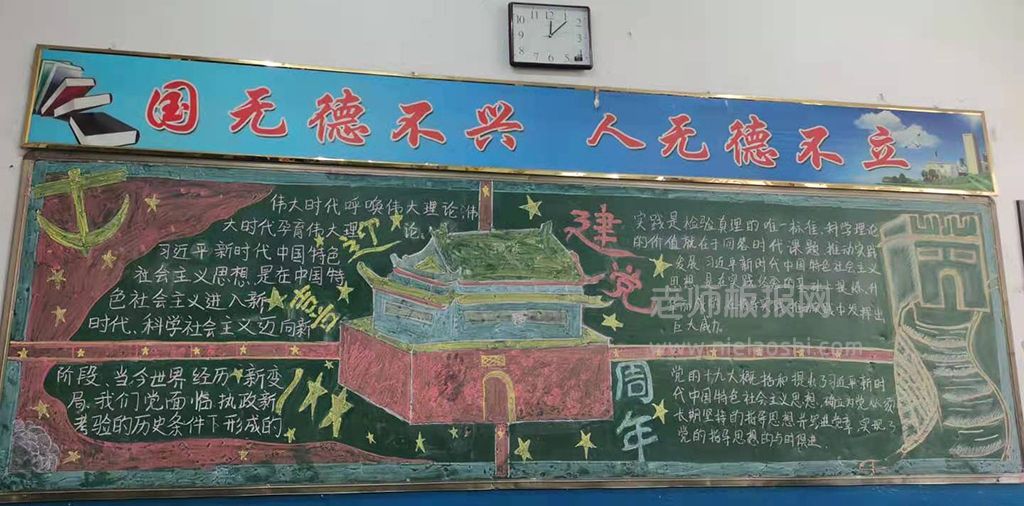 国无德不兴 人无德不立
伟大时代呼唤伟大理论,伟
大时代孕育伟大理论。
习近平新时代中国特色
社会主义思想,是在中国特
色社会主义进入新
时代、科学社会主义迈向新
阶段、当今世界经历新变
局、我们党面临执政新
考验的历史条件下形成的
迎
建党
周年
实践是检验真理的唯一标准,科学理论
的价值就在于回答时代课题,推动实践
发展,习近平新时代中国特色社会主义
巨大威力
党的十九大概括和提出了习近平新时
代中国特色社会主义思想,确立为党必须
长期坚持的指导思想并写进党章,实现了
党的指导思想的与时俱进。
老师板报网
www.pielaoshi.com
12
1
2
3
4
5
6
7
8
9
10
11